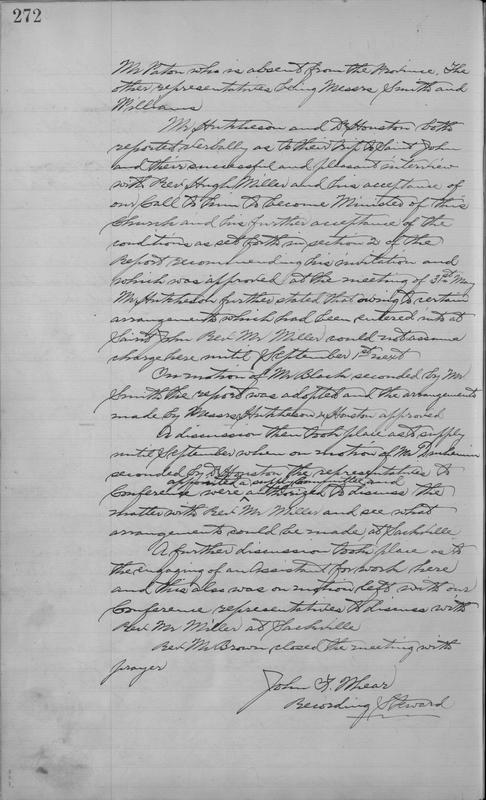 272
Mr Paton who is absent from the Province. The
other representatives being Messrs Smith and
Williams
Mr Hutcheson and Dr Houston both
reported verbally as to their trip to Saint John
and their successful and pleasant interview
with Rev Hugh Miller and his acceptance of
our Call to him to become Minister of this
Church and his further acceptance of the
conditions as set forth in section 2 of the
Report recommending his invitation and
which was approved at the meeting of 3rd May
Mr Hutcheson further stated that owing to certain
arrangements which had been entered into at
Saint John Rev Mr Miller could not assume
charge here until September 1st next
On motion of Mr Black seconded by Mr
Smith the report was adopted and the arrangements
made by Messrs Hutcheson & Houston approved
A discussion then took place as to supply
until September when on motion of Mr
seconded by Dr Houston the representatives to
appointed a supply committee and
Conference were authorized to discuss the
matter with Rev Mr Miller and see what
arrangements could be made at Sackville
A further discussion took place as to
the engaging of an Assistant for work here
and this also was on motion left with our
Conference representatives to discuss with
Rev Mr Miller at Sackville
Rev Mr Brown closed the meeting with
prayer
John F. Whear
Recording Steward